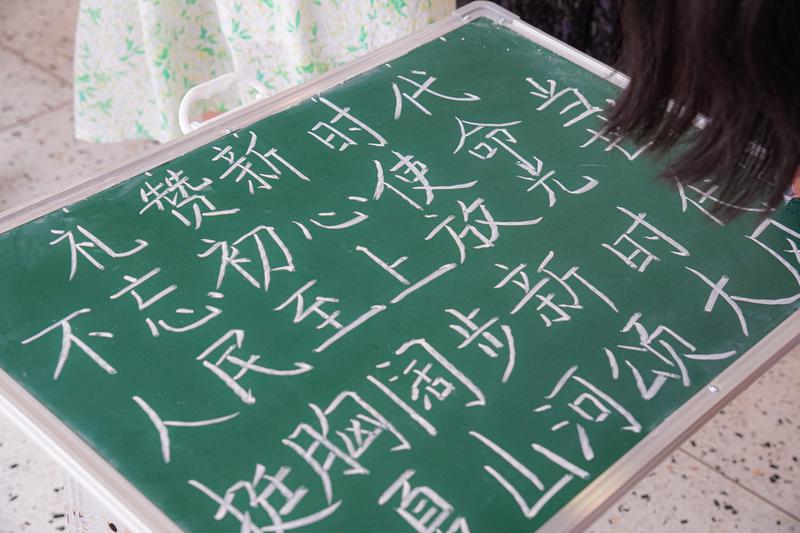 礼赞新时代
不忘初心使命当
人民至上放光
挺胸阔步新时代
山河颂大风